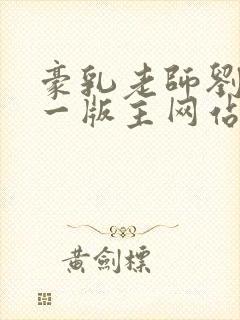 豪乳老師劉
一版主网佔
黄劍標